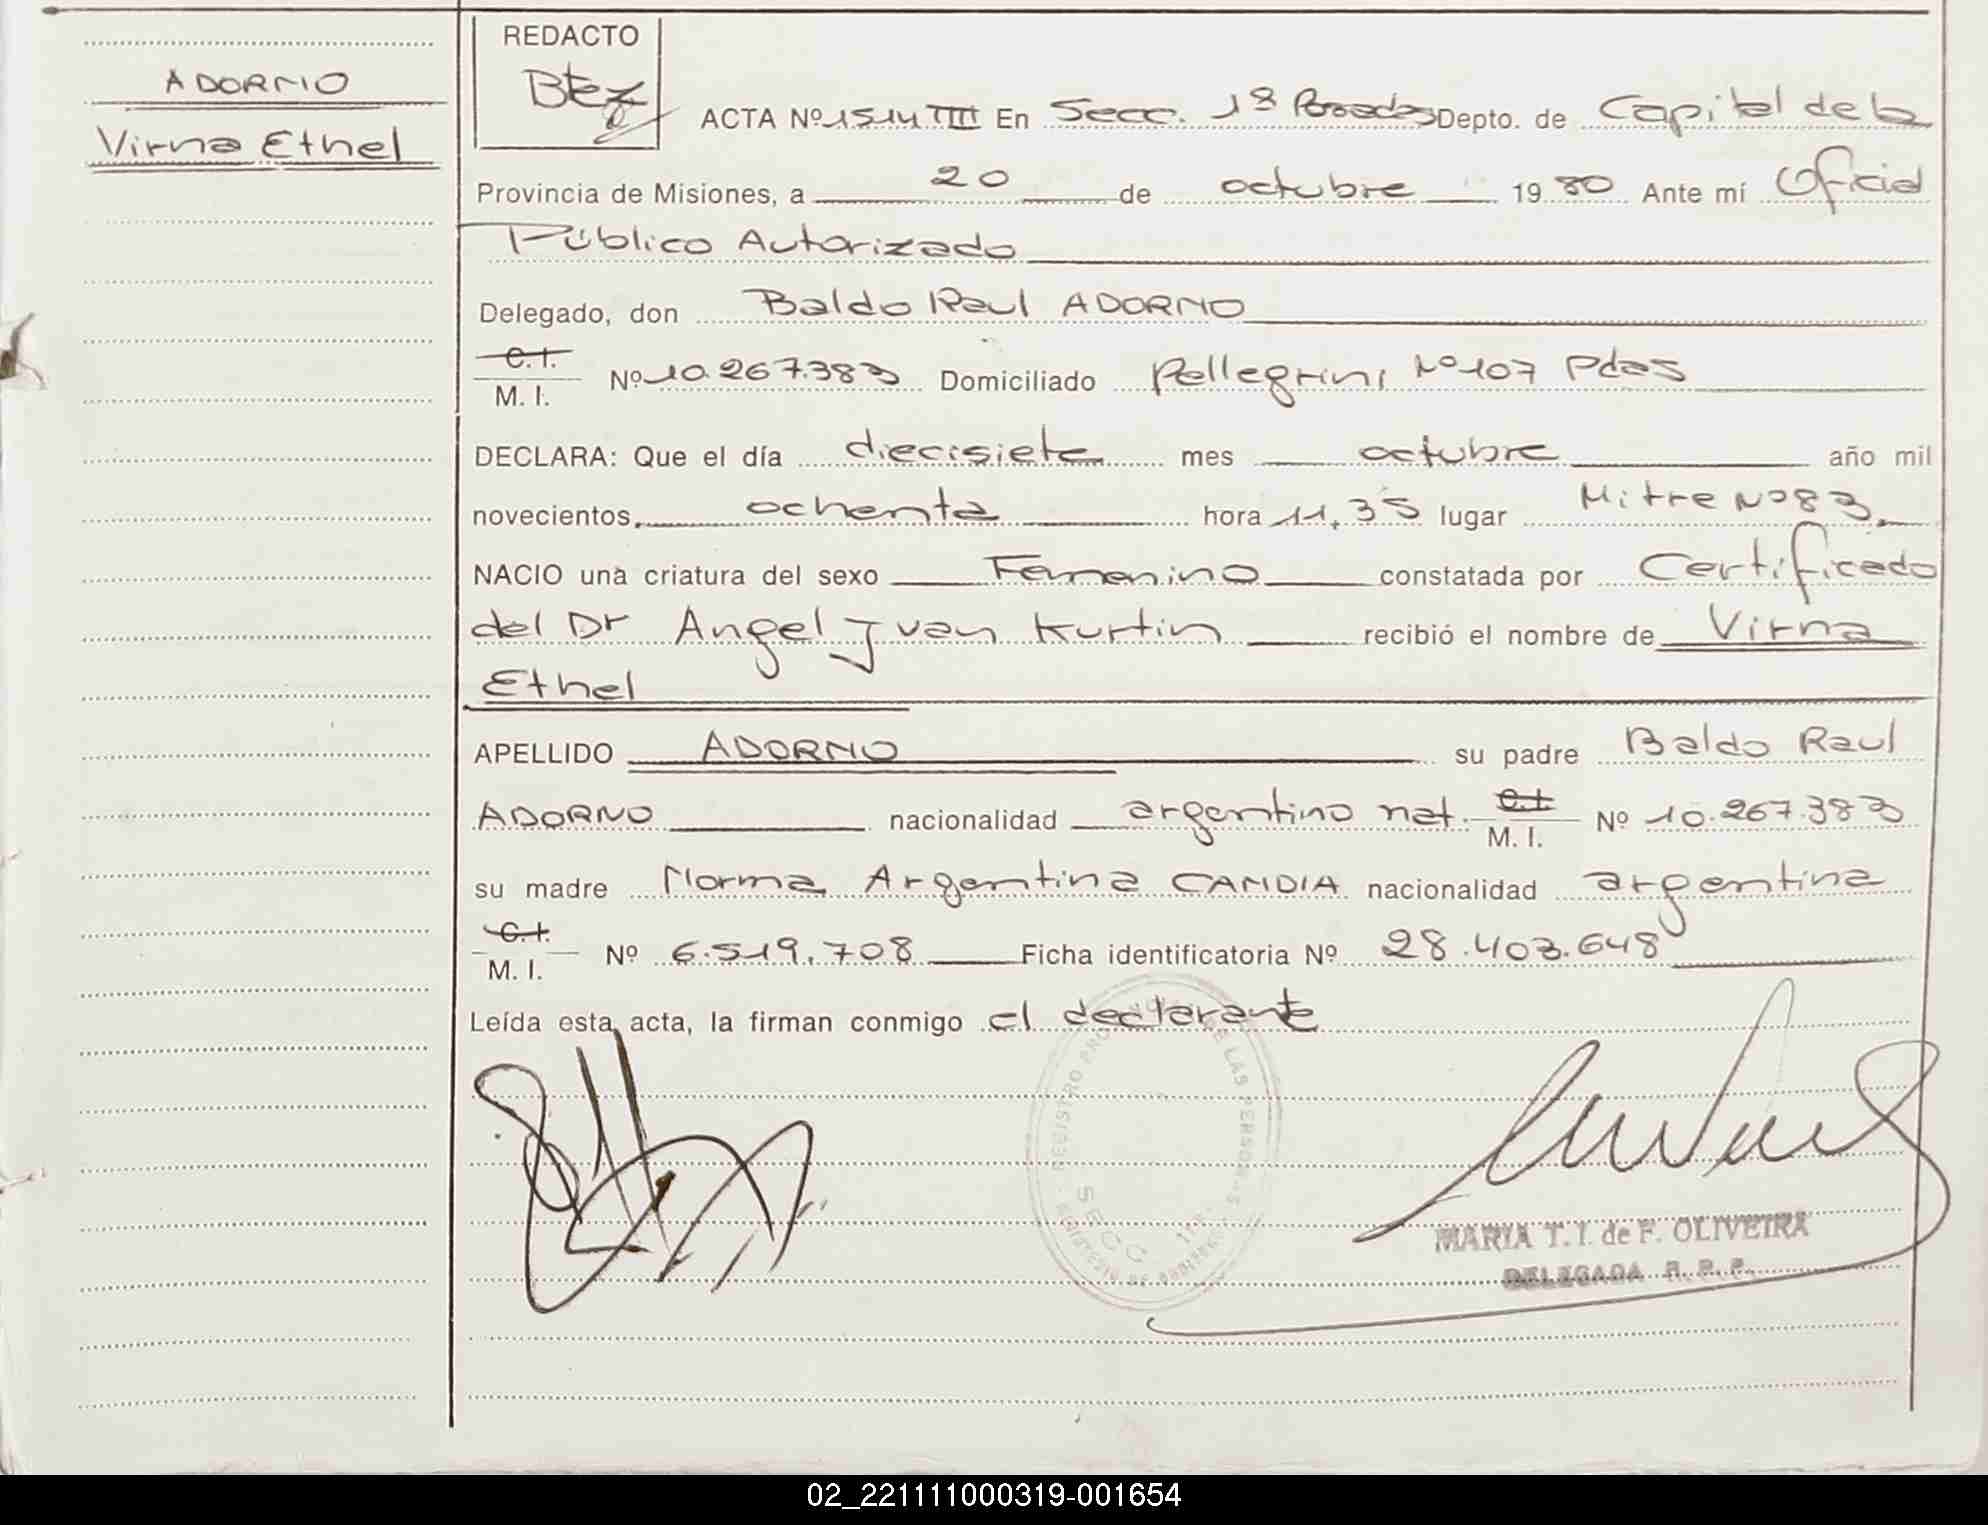 ADORNO
Virna Ethel
REDACTO
Btez
ACTA Nº 1514 TIII En Secc. 1ª Posadas Depto. de Capital de la
Provincia de Misiones, a 20 de octubre 1980 Ante mí Oficial
Público Autorizado
Delegado, don Baldo Raul ADORNO
C.I.
M. I. Nº 10.267.383 Domiciliado Pellegrini Nº 107 Pdas
DECLARA: Que el día diecisiete mes octubre año mil
novecientos, ochenta hora 11,35 lugar Mitre Nº 83.
NACIO una criatura del sexo Femenino constatada por Certificado
del Dr Angel Juan Kurtin recibió el nombre de Virna
Ethel
APELLIDO ADORNO su padre Baldo Raul
ADORNO nacionalidad argentino nat. C.I. M. I. Nº 10.267.383
su madre Norma Argentina CANDIA nacionalidad argentina
C.I.
M. I. Nº 6.519.708 Ficha identificatoria Nº 28.403.648
Leída esta acta, la firman conmigo el declarante
REGISTRO PROVINCIAL DE LAS PERSONAS
SECC 1ra.
MARIA T. I. de F. OLIVEIRA
DELEGADA R. P. P.
02_221111000319-001654